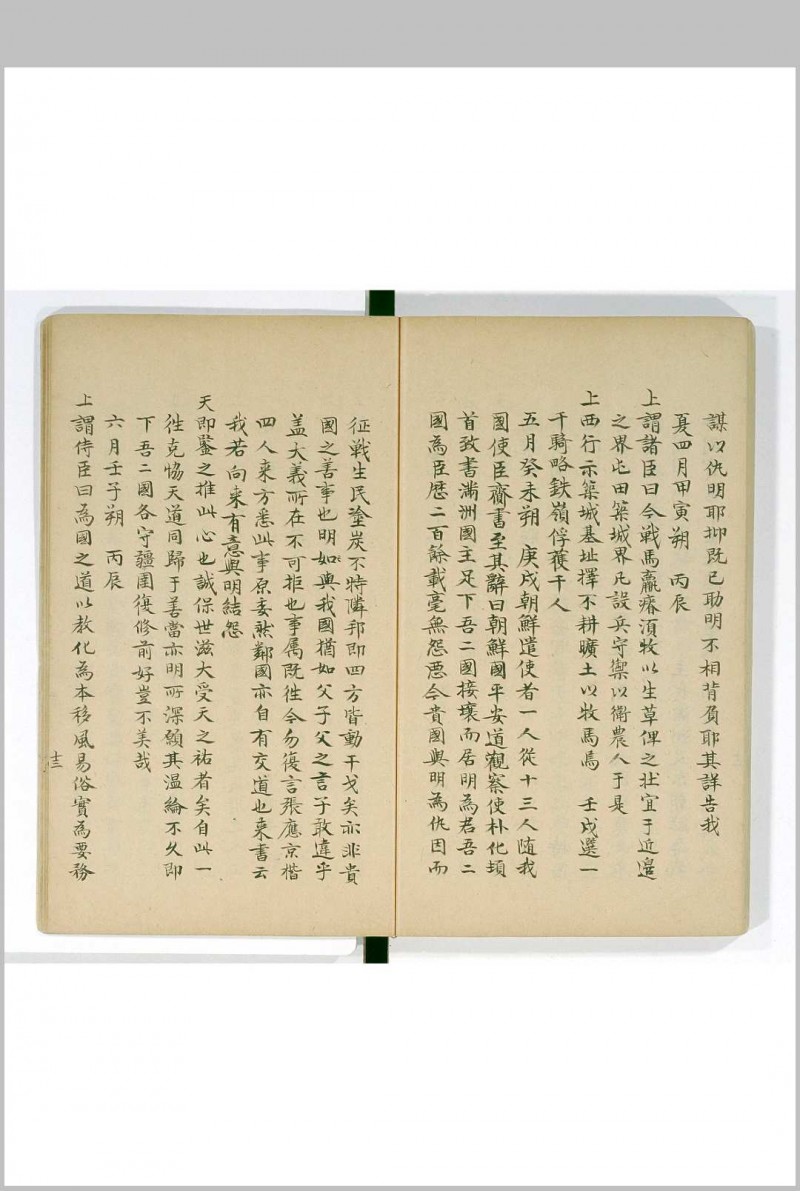 謀以仇明耶抑既已助明不相背負耶其詳告我
夏四月甲寅朔　丙辰
上謂諸臣曰今戰馬羸瘠須牧以生草俾之壯宜于近邊
之界屯田築城界凡設兵守禦以衛農人于是
上西行示築城基址擇不耕曠土以牧馬焉　壬戌選一
千騎略鉄嶺俘獲千人
五月癸未朔　庚戌朝鮮遣使者一人從十三人隨我
國使臣齎書至其辭曰朝鮮國平安道觀察使朴化頓
首致書滿洲國主足下吾二國接壤而居明為君吾二
國為臣歷二百餘載毫無怨惡今貴國與明為仇因而
征戰生民塗炭不特隣邦即四方皆動干戈矣亦非貴
國之善事也明如與我國猶如父子父之言子敢違乎
盖大義所在不可拒也事属既徃今勿復言張應京楷
四人来方悉此事原委然鄰國亦自有交道也来書云
我若向来有意與明結怨
天即鑒之推此心也誠保世滋大受天之祐者矣自此一
徃克恊天道同歸于善當亦明所深願其温綸不久即
下吾二國各守疆圉復修前好豈不美哉
六月壬子朔　丙辰
上謂侍臣曰為國之道以教化為本移風易俗實為要務
十三